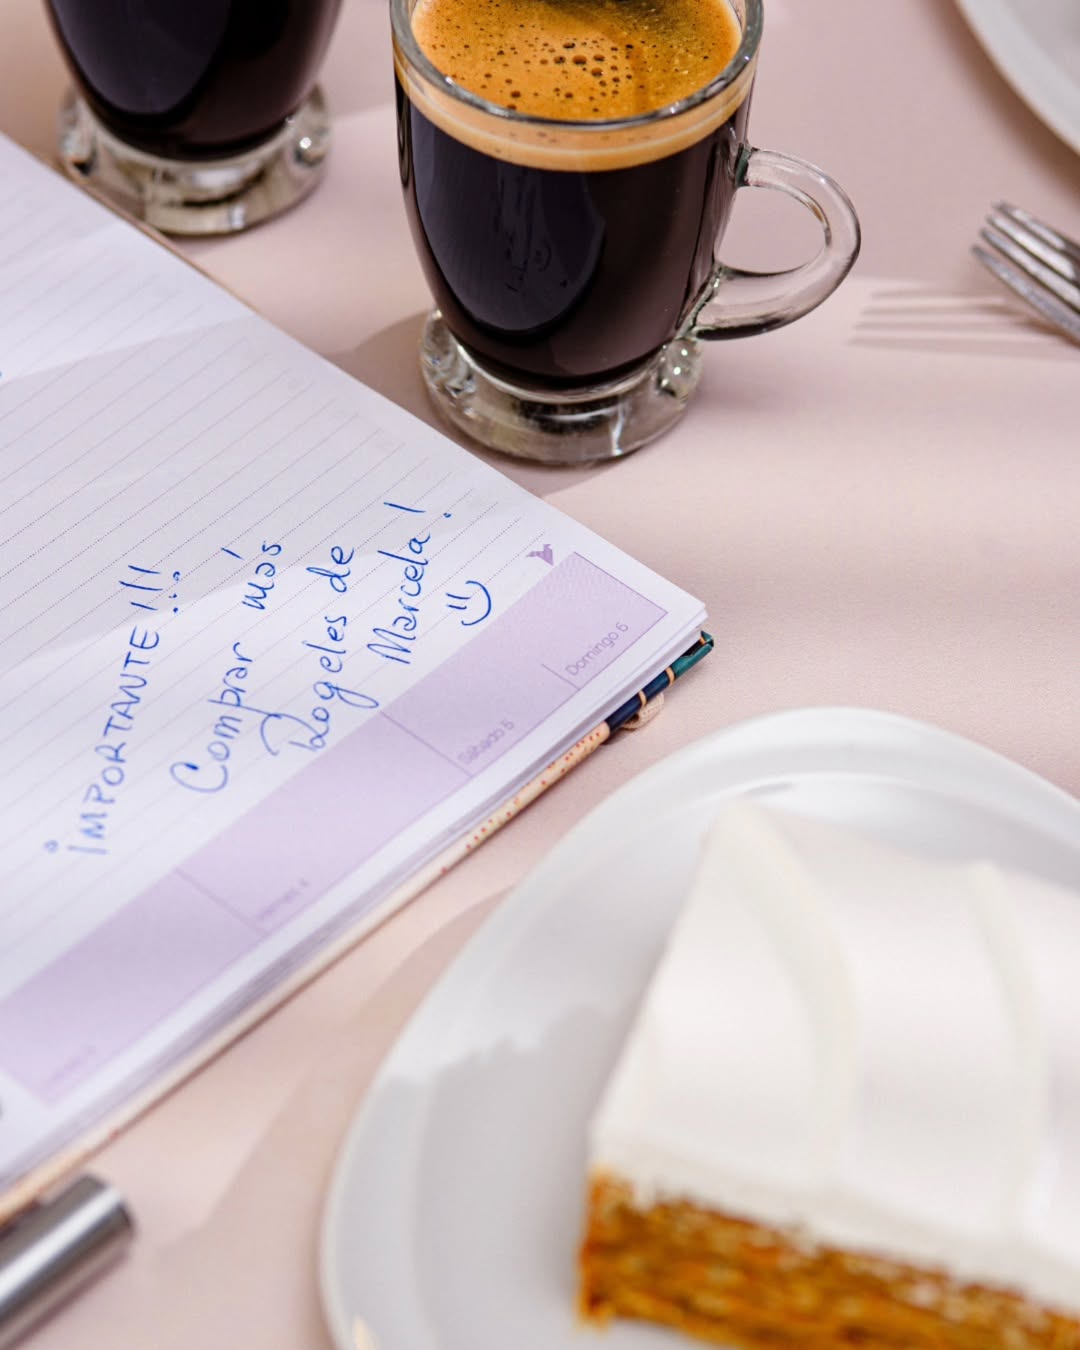 ¡IMPORTANTE!!!
Comprar más
Rogeles de
Marcela!
Viernes 4
Sábado 5
Domingo 6